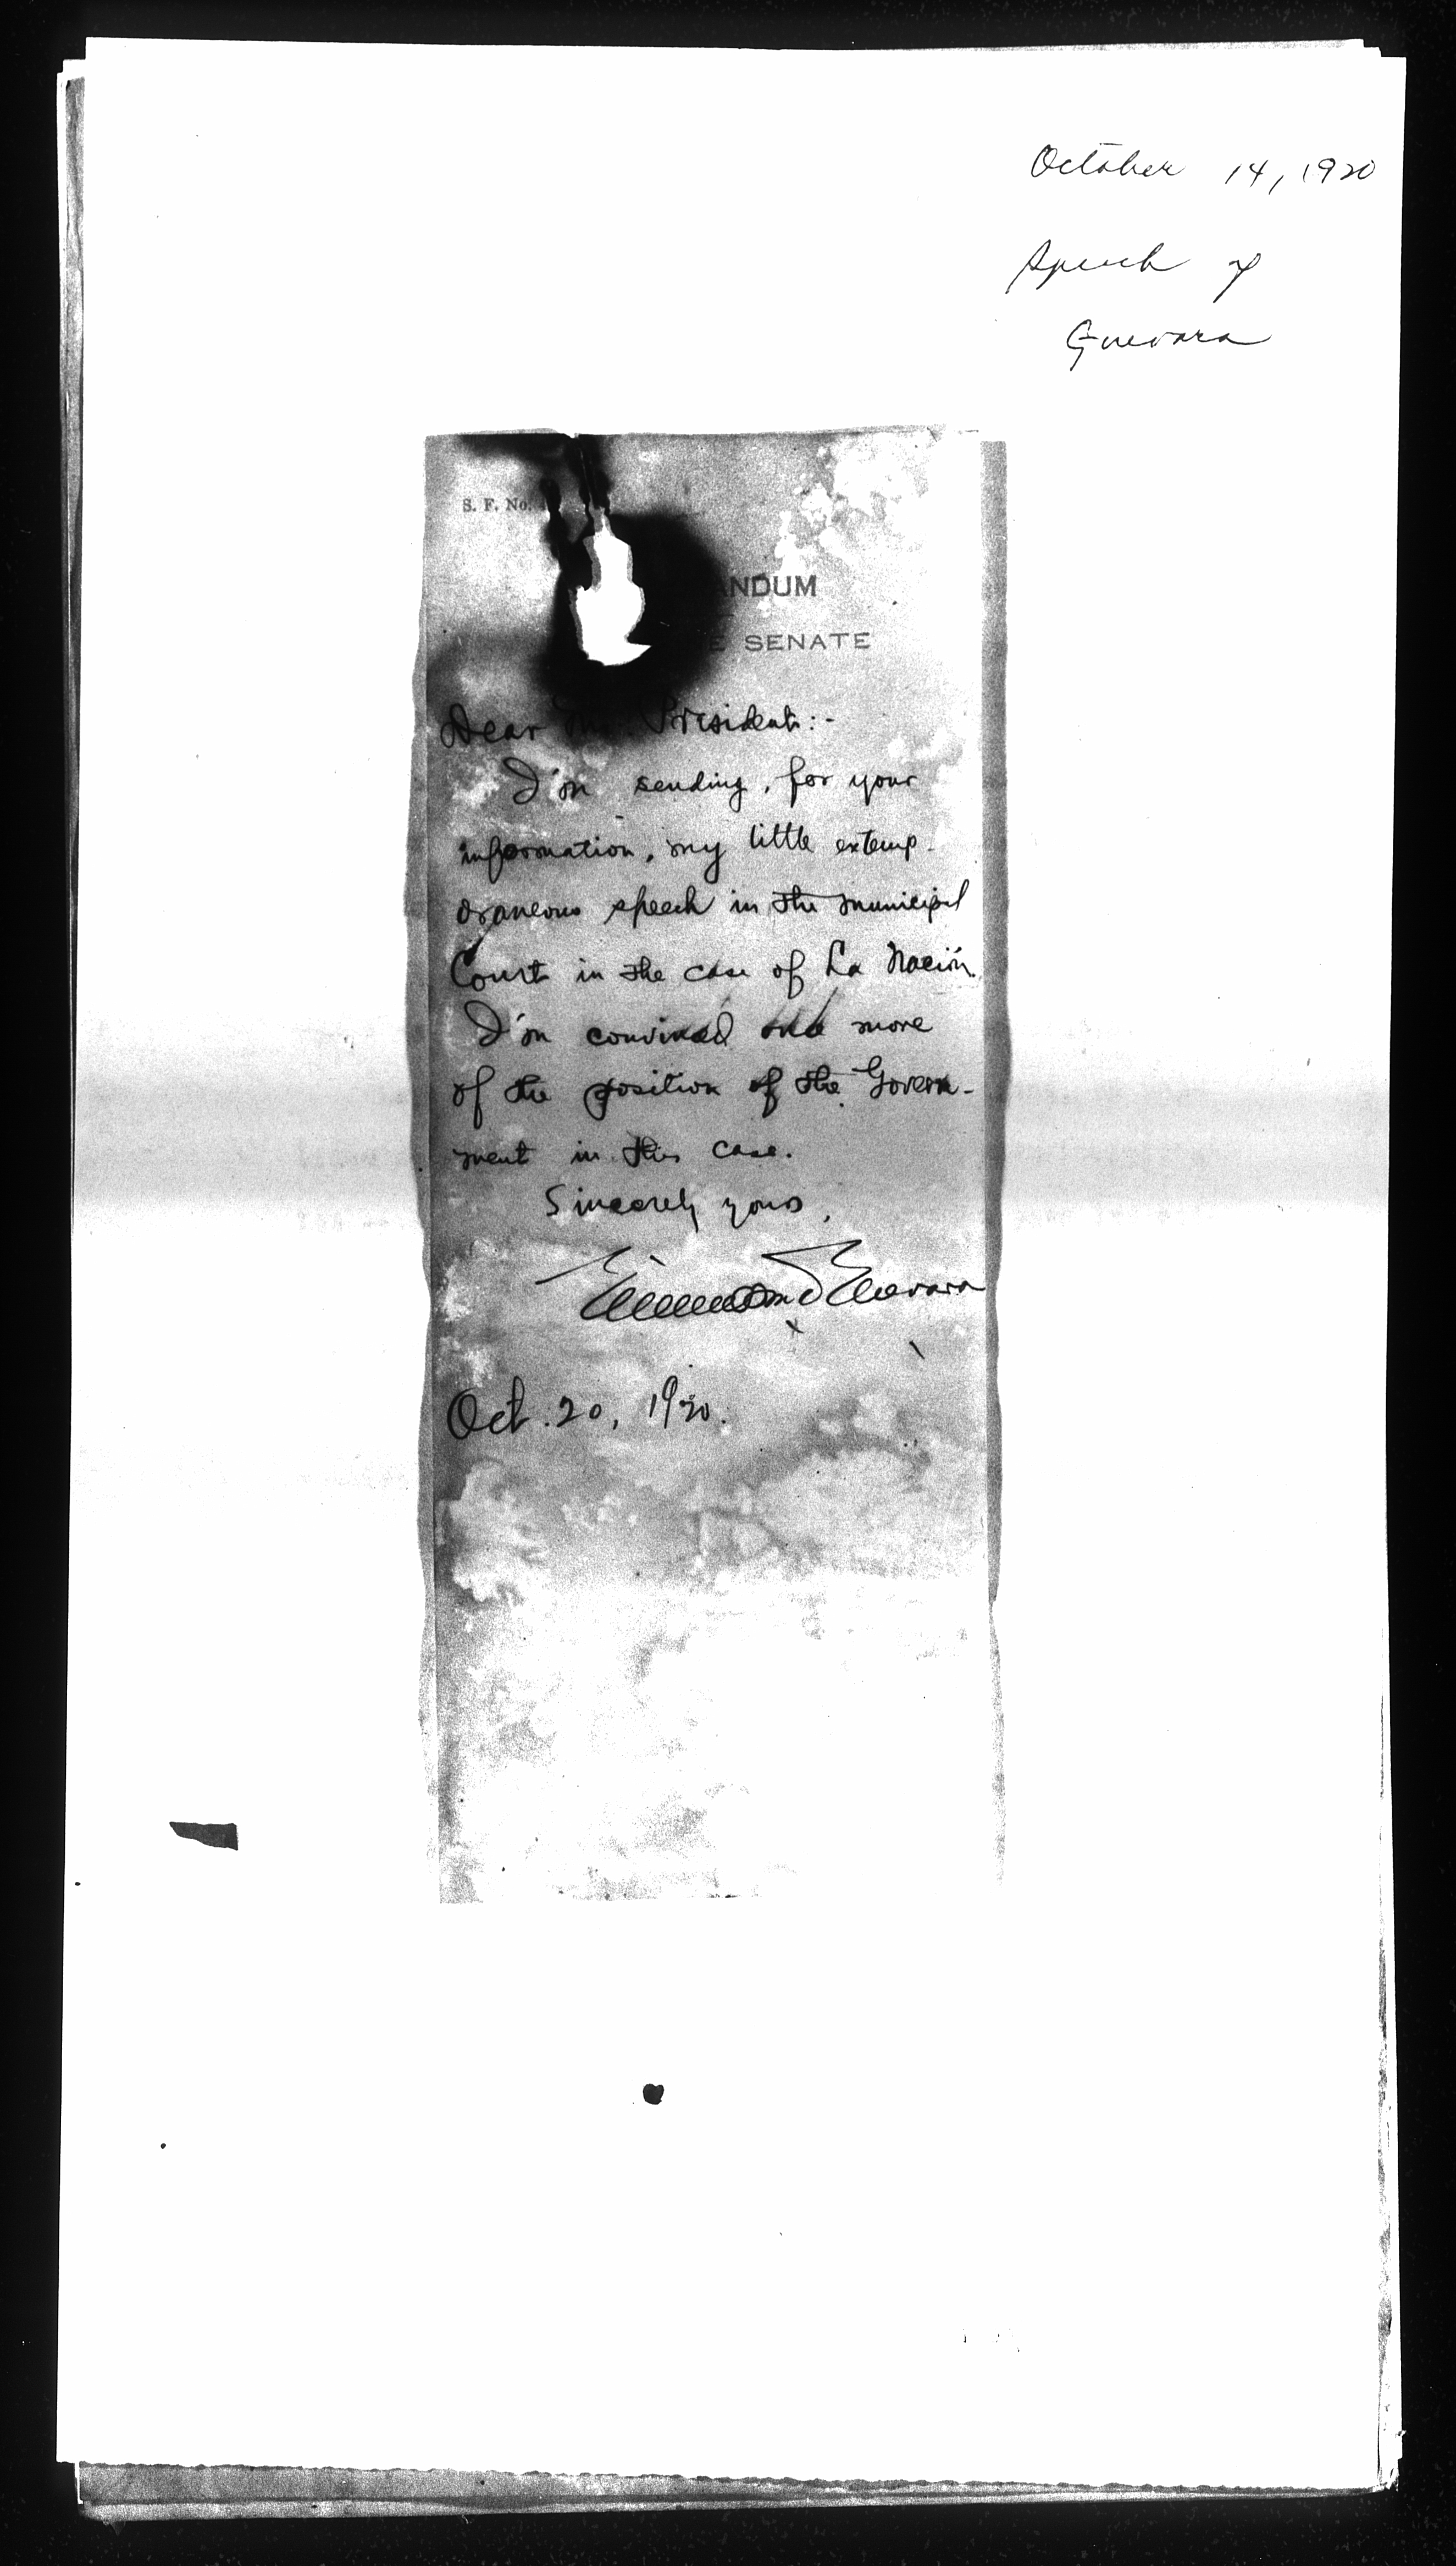 October 14, 1920
Speech of
Guevara
S. F. No.
NDUM
E SENATE
Dear Mr. President:-
I'm sending, for your
information, my little extemp-
oraneous speech in the municipal
Court in the case of La Nación.
I'm convinced once more
of the position of the Govern-
ment in this case.
Sincerely yours,
Guevara
Oct. 20, 1920.